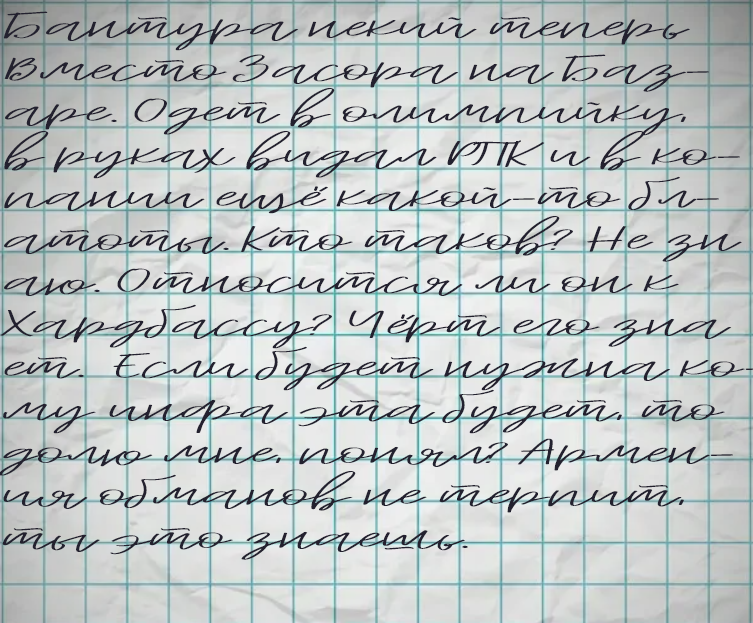 Бантура некий теперь
Вместо Засора на Баз-
аре. Одет в олимпийку,
в руках видал РПК и в ко-
пании ещё какой-то бл-
атоты. Кто таков? Не зн
аю. Относится ли он к
Хардбассу? Чёрт его зна
ет. Если будет нужна ко-
му инфа эта будет, то
долю мне, понял? Армен-
ия обманов не терпит,
ты это знаешь.